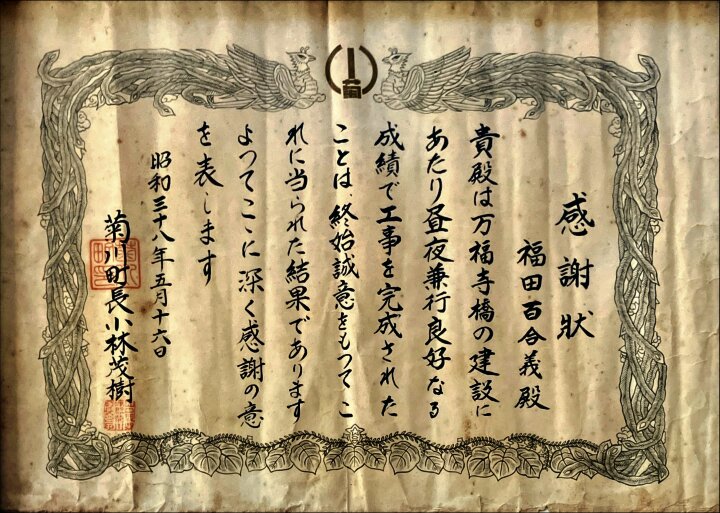 感謝状
福田百合義殿
貴殿は万福寺橋の建設に
あたり昼夜兼行良好なる
成績で工事を完成された
ことは、終始誠意をもつてこ
れに当られた結果であります
よつてここに深く感謝の意
を表します
昭和三十八年五月十六日
菊川町長小林茂樹